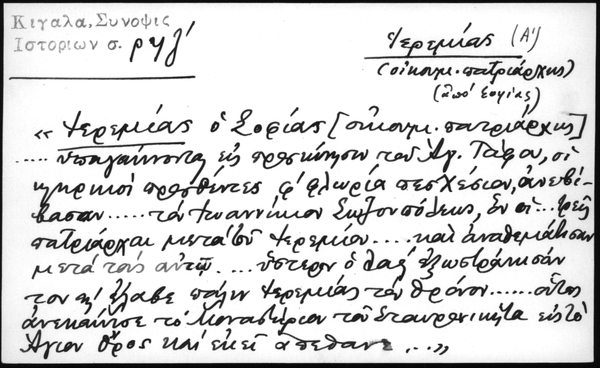 Κιγάλα, Σύνοψις
Ἱστοριῶν σ. ρηζ'
Ἱερεμίας (Α')
(οἰκουμ. πατριάρχης)
(ἀπό Σοφίας)
« Ἱερεμίας ὁ Σοφίας [οἰκουμ. πατριάρχης]
..... ὑπαγαίνοντας εἰς προσκύνησιν τοῦ Ἁγ. Τάφου, οἱ
κληρικοί προσθέντες φ' φλωρία πεσχέσιον, ἀνεβί-
βασαν ..... τόν Ἰωαννίκιον Σωζοπόλεως, ὅν οἱ ... τρεῖς
πατριάρχαι μετά τοῦ Ἱερεμίου .... καί ἀναθεμάτισαν
μετά τούς αὐτοῦ .... ὕστερον ὁ λαός ἐξωστράκισάν
τον κι' ἔλαβε πάλιν Ἱερεμίας τόν θρόνον ...... οὗτος
ἀνεκαίνισε τό Μοναστήριον τοῦ Σταυρονικήτα εἰς τό
Ἅγιον Ὄρος καί ἐκεῖ ἀπέθανε ... »